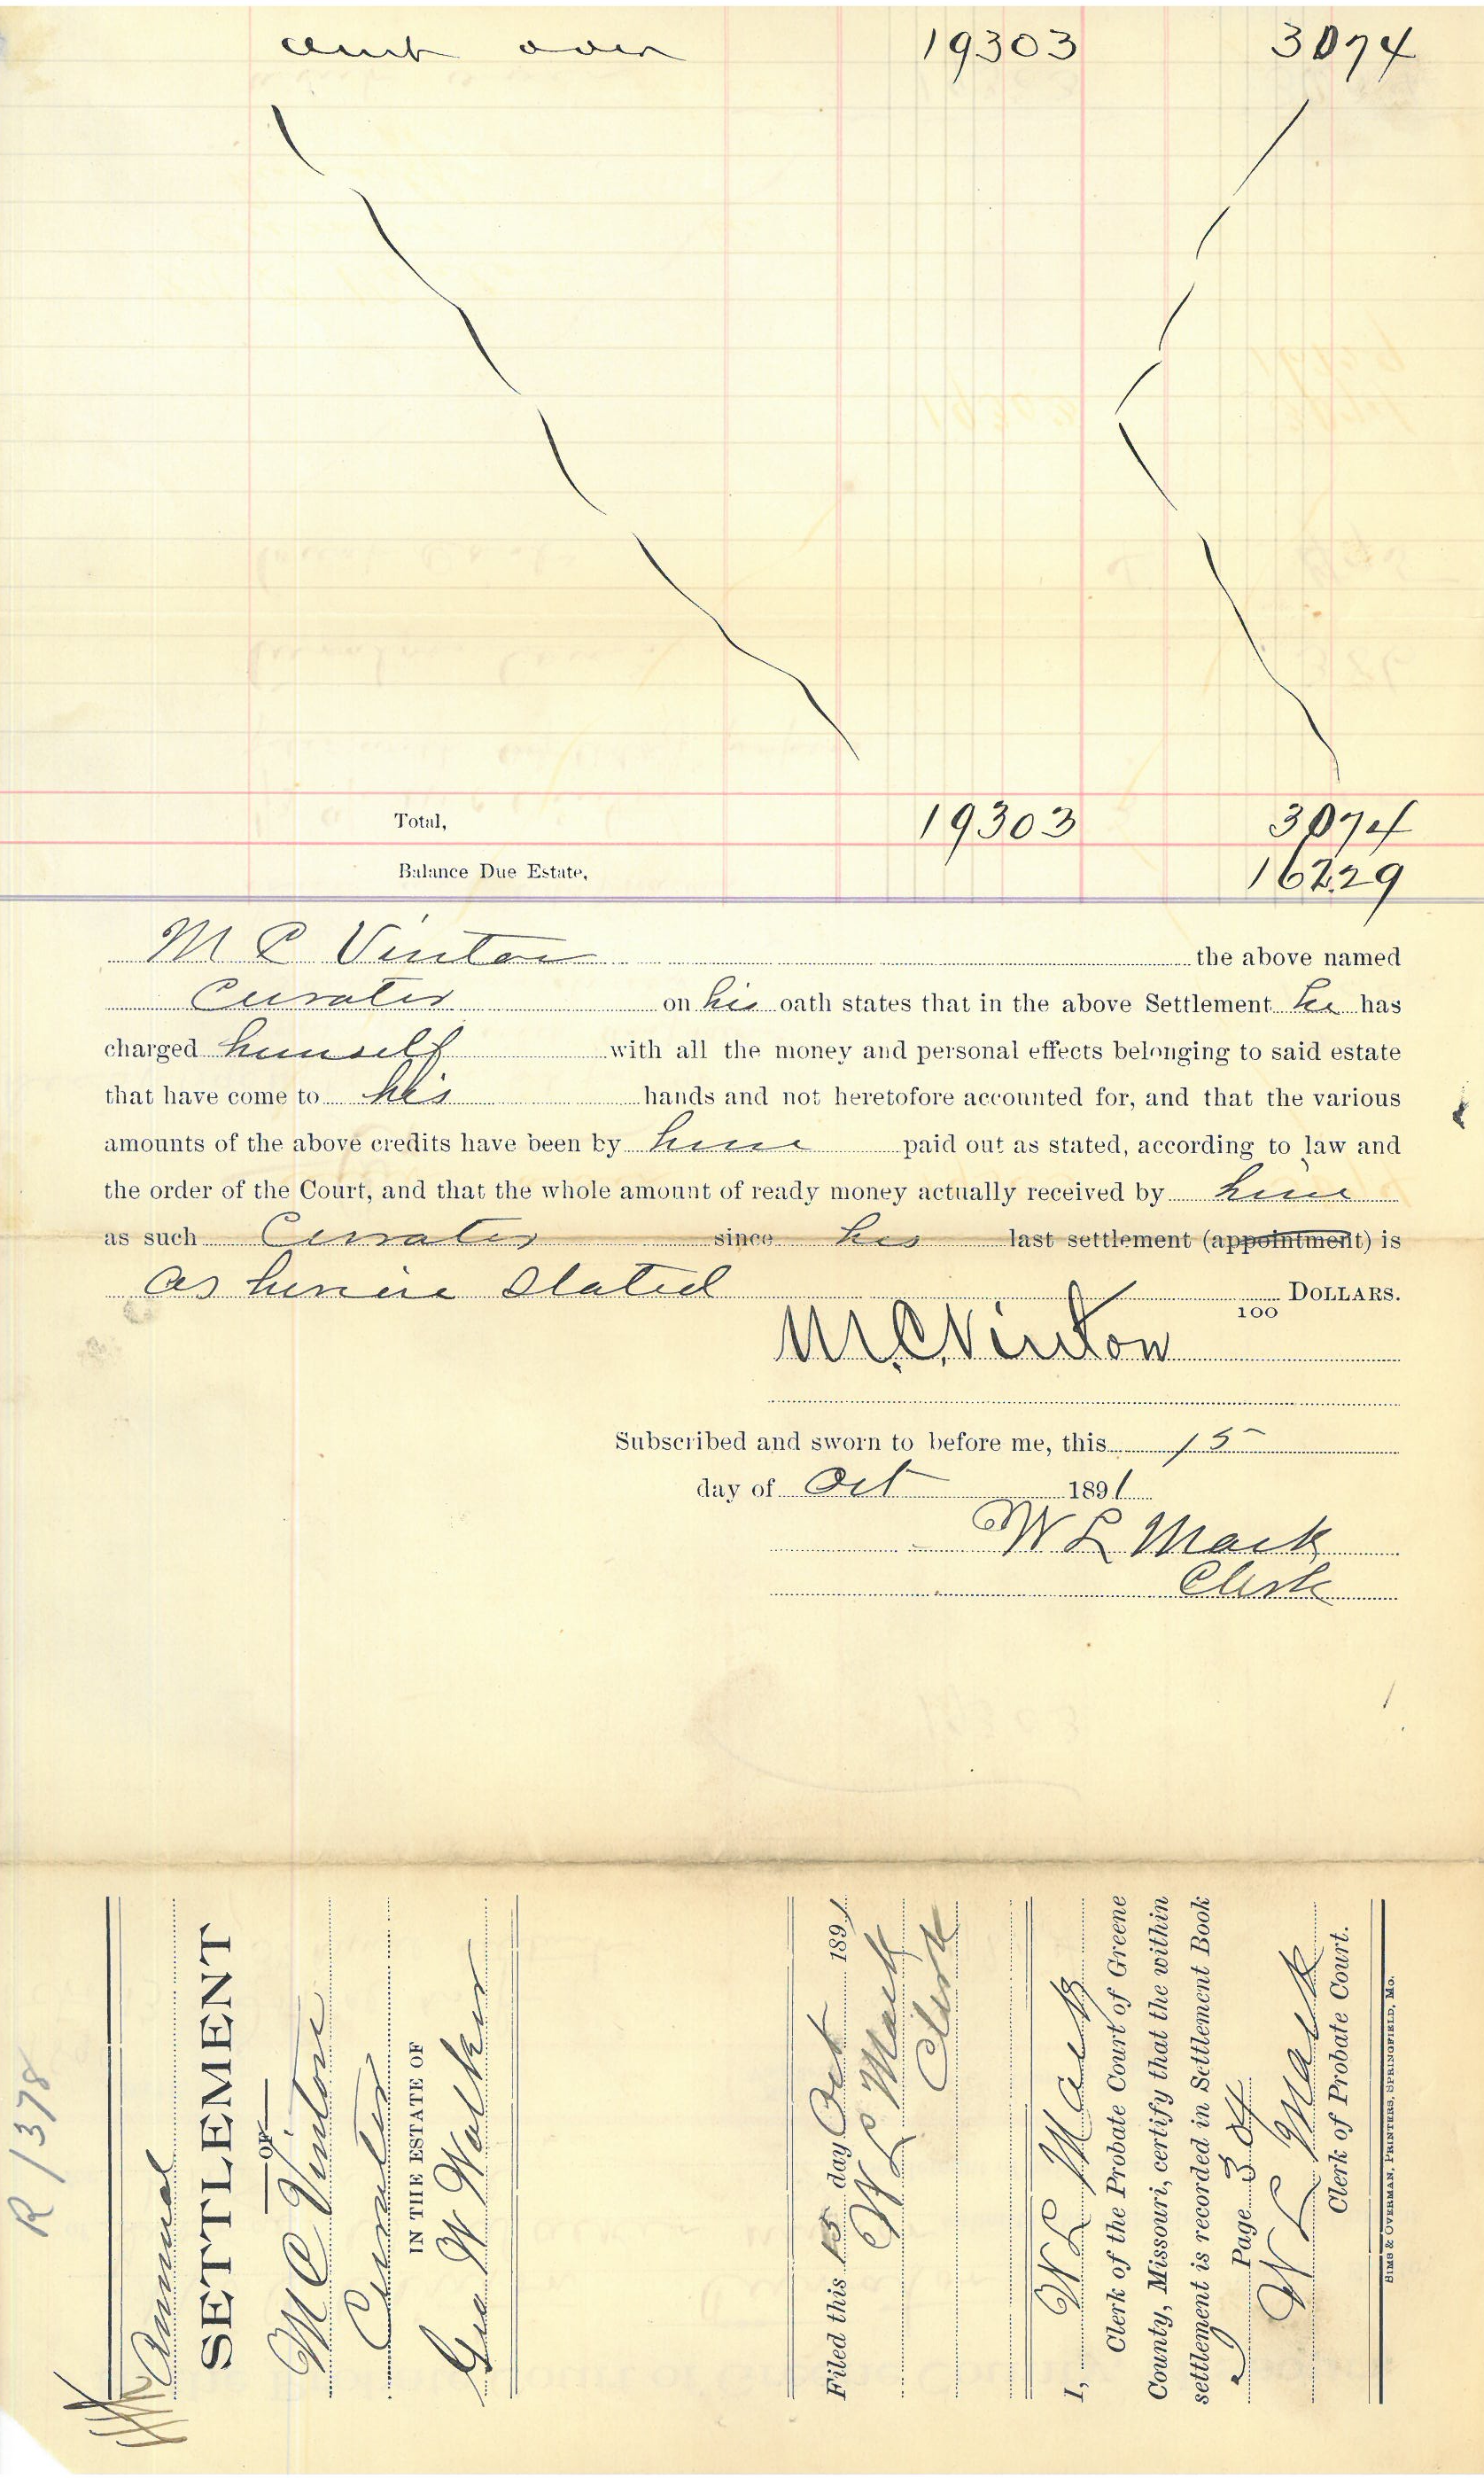 amt over 19303 3074
Total, 19303 3074
Balance Due Estate, 162.29
M C Vinton the above named
Curator on his oath states that in the above Settlement he has
charged himself with all the money and personal effects belonging to said estate
that have come to his hands and not heretofore accounted for, and that the various
amounts of the above credits have been by him paid out as stated, according to law and
the order of the Court, and that the whole amount of ready money actually received by him
as such Curator since his last settlement (appointment) is
as herein stated 100 DOLLARS.
M.C. Vinton
Subscribed and sworn to before me, this 15
day of Oct 1891
W L Mack
Clerk
R 1378
Annual
SETTLEMENT
OF
M C Vinton
Curator
IN THE ESTATE OF
Geo W Walker
Filed this 15 day Oct 1891
W L Mack
Clerk
I, W L Mack
Clerk of the Probate Court of Greene
County, Missouri, certify that the within
settlement is recorded in Settlement Book
J Page 304
W L Mack
Clerk of Probate Court.
SIMS & OVERMAN, PRINTERS, SPRINGFIELD, MO.